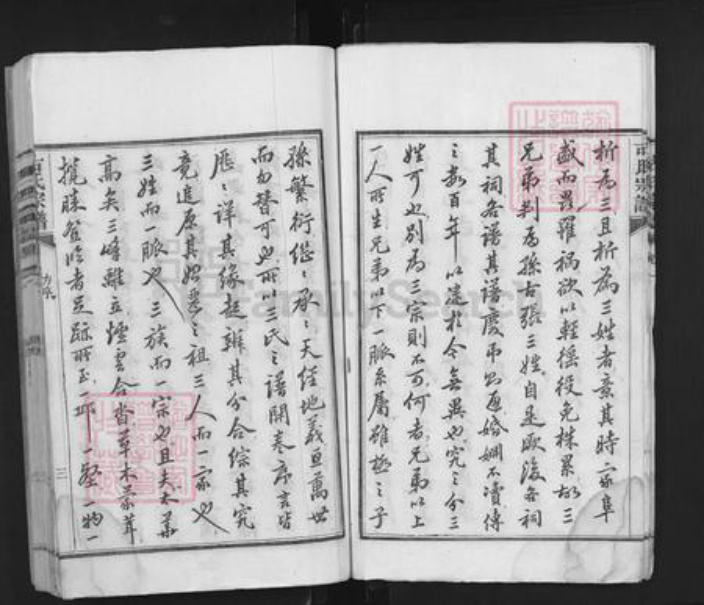 析為三且析為三姓者意其時家阜
盛而畏罹禍欲以輕徭役免株累故三
兄弟判為孫古張三姓自是厥後各祠
其祠各譜其譜慶弔必通婚姻不瀆傳
之數百年以迄於今無異也究之分三
姓可也別為三宗則不可何者兄弟以上
一人所生兄弟以下一脈系屬雖極之子
孫繁衍繼繼承承天經地義亘萬世
而勿替可也所以三氏之譜開卷序言皆
歷歷詳其緣起辨其分合綜其究
竟追原其始三之祖三人而一家也
三姓而一脈也三族而一宗也且夫木葉
高矣三峰離立煙雲合沓草木蒙茸
攬勝登臨者足跡所至一邱一壑一物一
三
FamilySearch